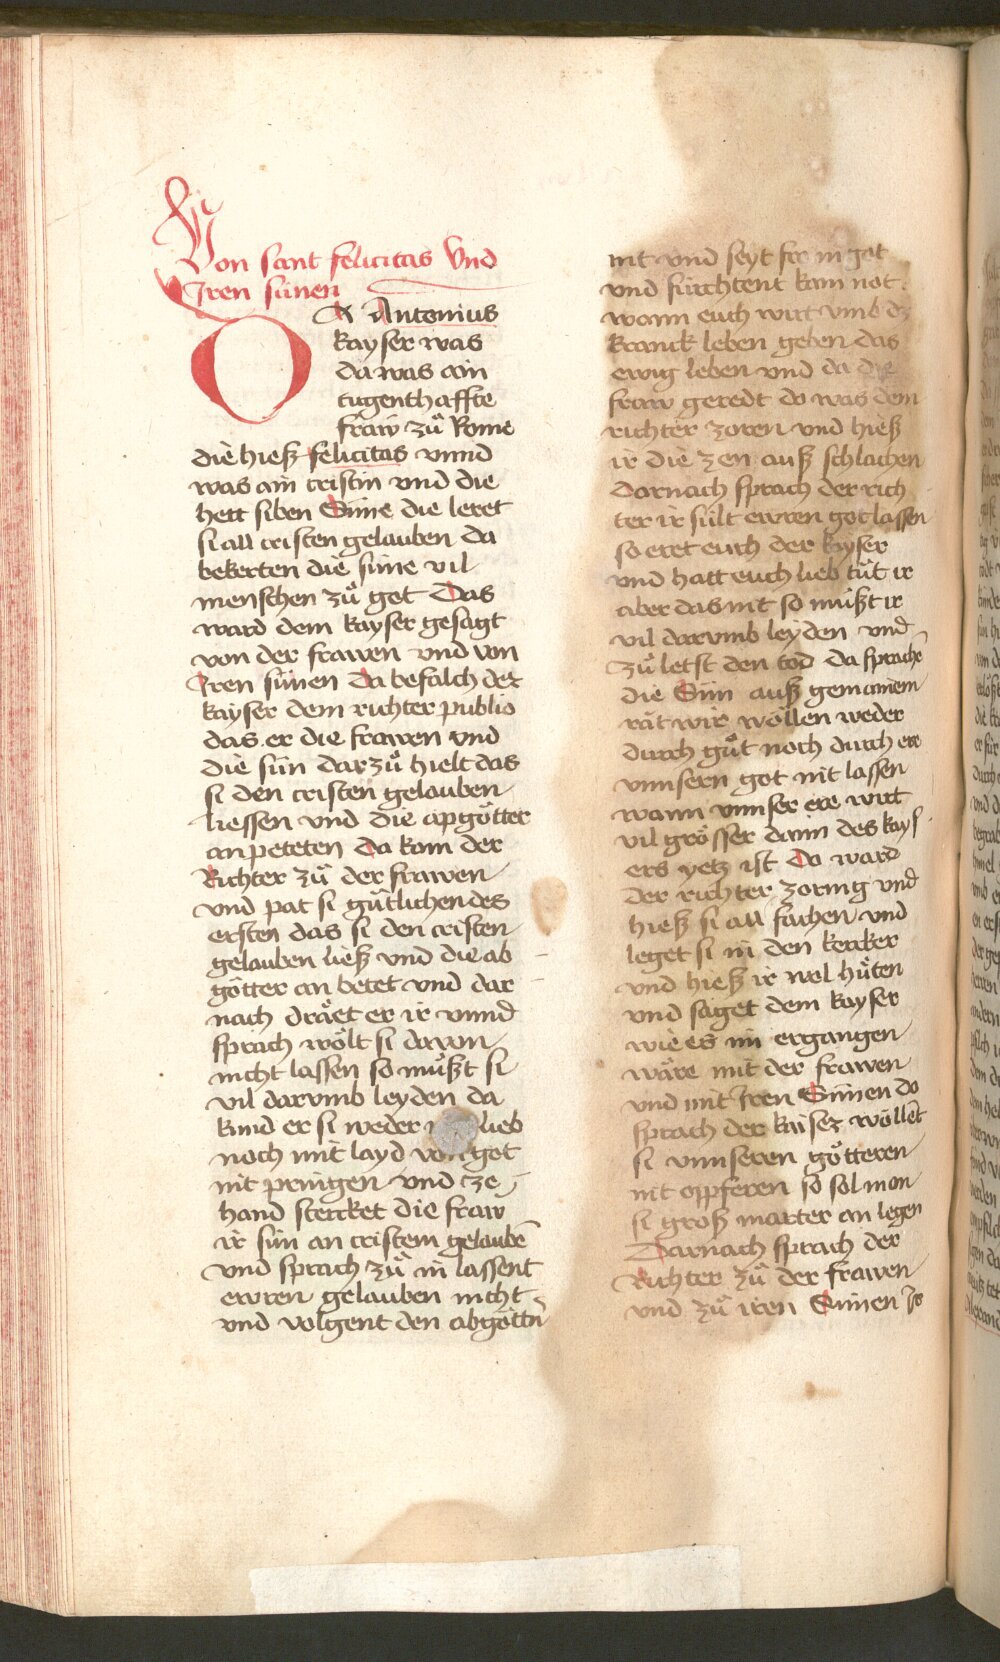 Von sant felicitas Vnd
Iren sünen
DA Antonius
kayser was
da was ain
tugenthaffte
fraw zů Rome
die hieß felicitas vnnd
was ain cristin vnd die
hett siben Süne die leret
si all cristen gelauben da
bekerten die süne vil
menschen zů got Das
ward dem kayser gesagt
von der frawen vnd von
Iren sünen Da befalch der
kayser dem richter publio
das er die frawen vnd
die sün darzů hielt das
si den cristen gelauben
liessen vnd die apgötter
anpeteten Da kom der
Richter zů der frawen
vnd pat si gütlichen des
ersten das si den cristen
gelauben ließ vnd die ab
götter an betet vnd dar
nach dräet er ir vnnd
sprach wölt si dauon
nicht lassen so můßt si
vil darvmb leyden da
kund er si weder lieb
noch mit layd von got
nit pringen vnd ze
hand stercket die fraw
ir sün an cristem gelaubē
vnd sprach zů in lassent
ewren gelauben nicht
vnd volgent den abgöttn̄
nit vnd seyt fro in got
vnd fürchtent kain not
wann euch wirt vmb dz
kranck leben geben das
ewig leben vnd da die
fraw geredt do was dem
richter zoren vnd hieß
ir die zen auß schlachen
Darnach sprach der rich
ter ir sült ewren got lassen
so eret euch der kayser
vnd hatt euch lieb tůt ir
aber das nit so müßt ir
vil darvmb leyden vnd
zů letst den tod da sprachē
die Sün auß gemainem
rät wir wöllen weder
durch gůt noch durch ere
vnnsern got nit lassen
wann vnnser ere wirt
vil grösser dann des kays
ers yetz ist Do ward
der richter zornig vnd
hieß si all fachen vnd
leget si in den kercker
vnd hieß ir wol hüten
vnd saget dem kayser
wie es im ergangen
wäre mit der frawen
vnd mit Iren Sünen do
sprach der kaiser wöllēt
si vnnseren götteren
nit oppferen so sol man
si groß marter an legen
Darnach sprach der
Richter zů der frawen
vnd zů iren Sünen Ir